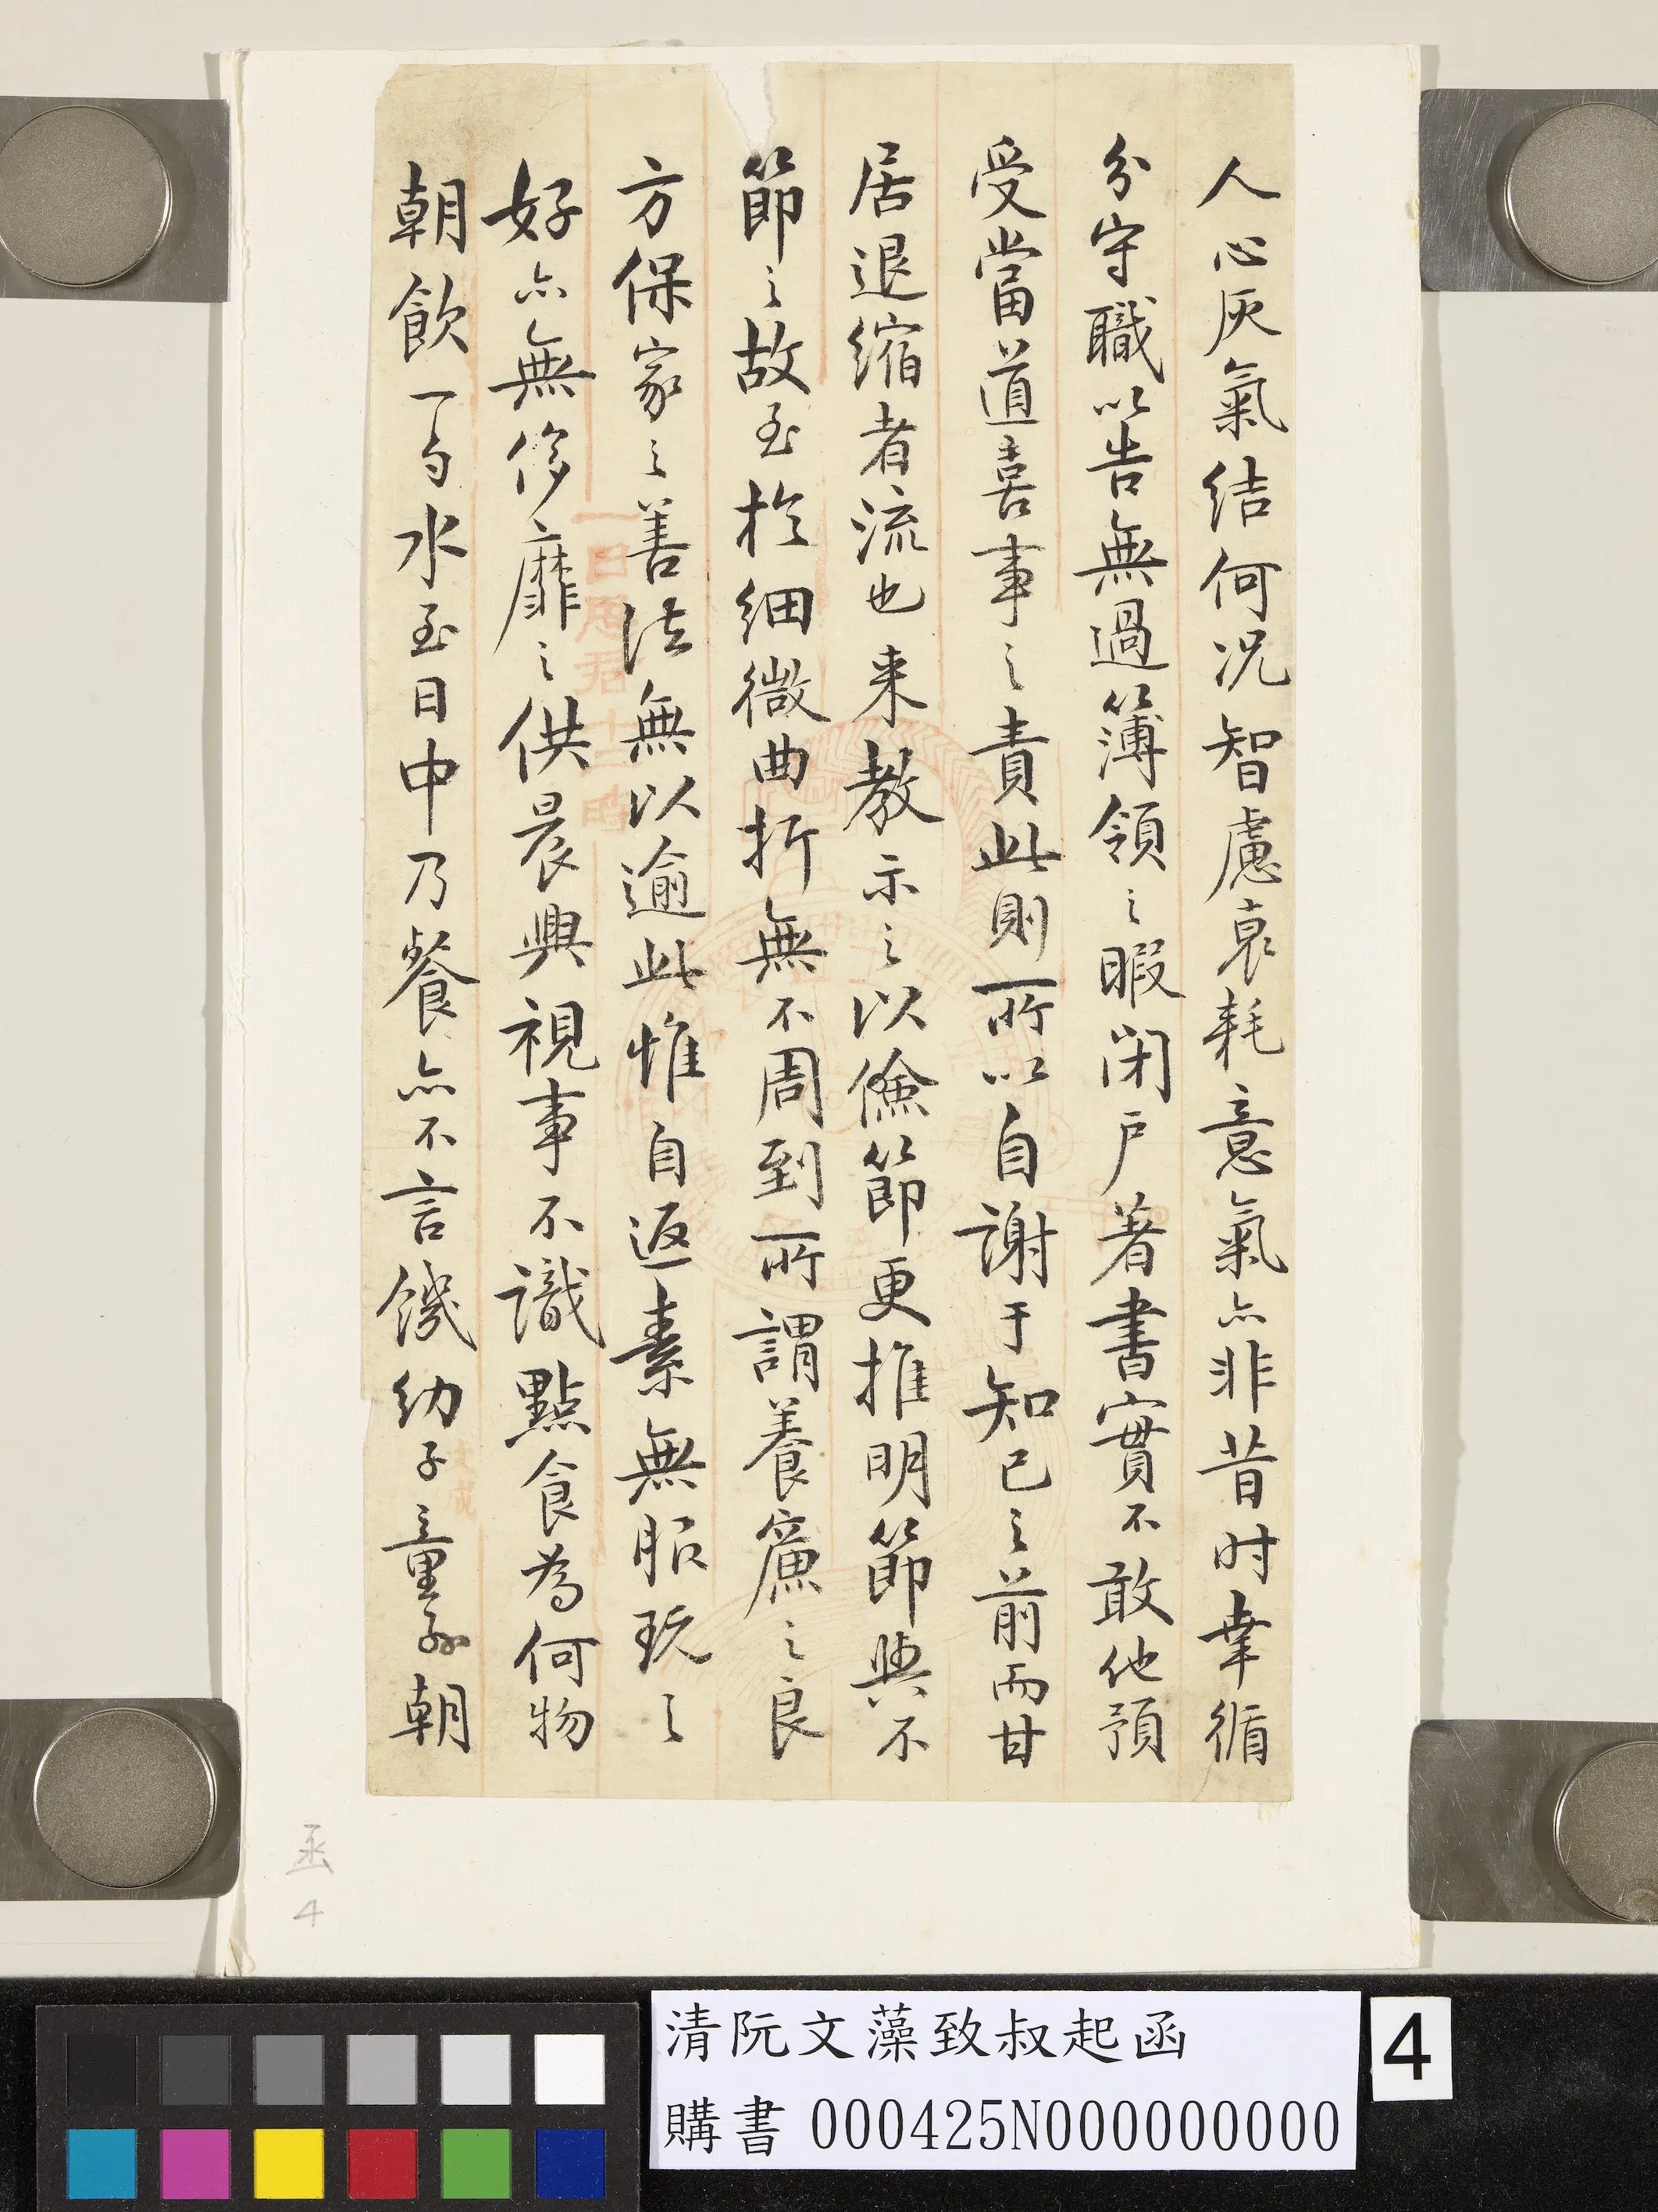 人心灰氣結何況智慮衰耗意氣亦非昔时幸循
分守職以告無過簿領之暇闭户著書實不敢他預
受當道喜事之責此則所以自謝于知己之前而甘
居退缩者流也来教示之以儉節更推明節與不
節之故至於细微曲折無不周到所謂養廉之良
方保家之善法無以逾此惟自返素無服玩之
好亦無侈靡之供晨興視事不識點食為何物
朝飲一勺水至日中乃餐亦不言饑幼子童孫朝
函
4
清阮文藻致叔起函
購書 000425N000000000
4